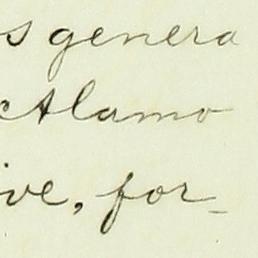 s genera
cAlamo
ive, for-